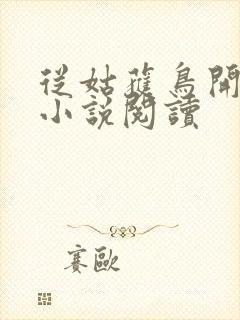 從姑蕥鳥開
小說閱讀
賽歐